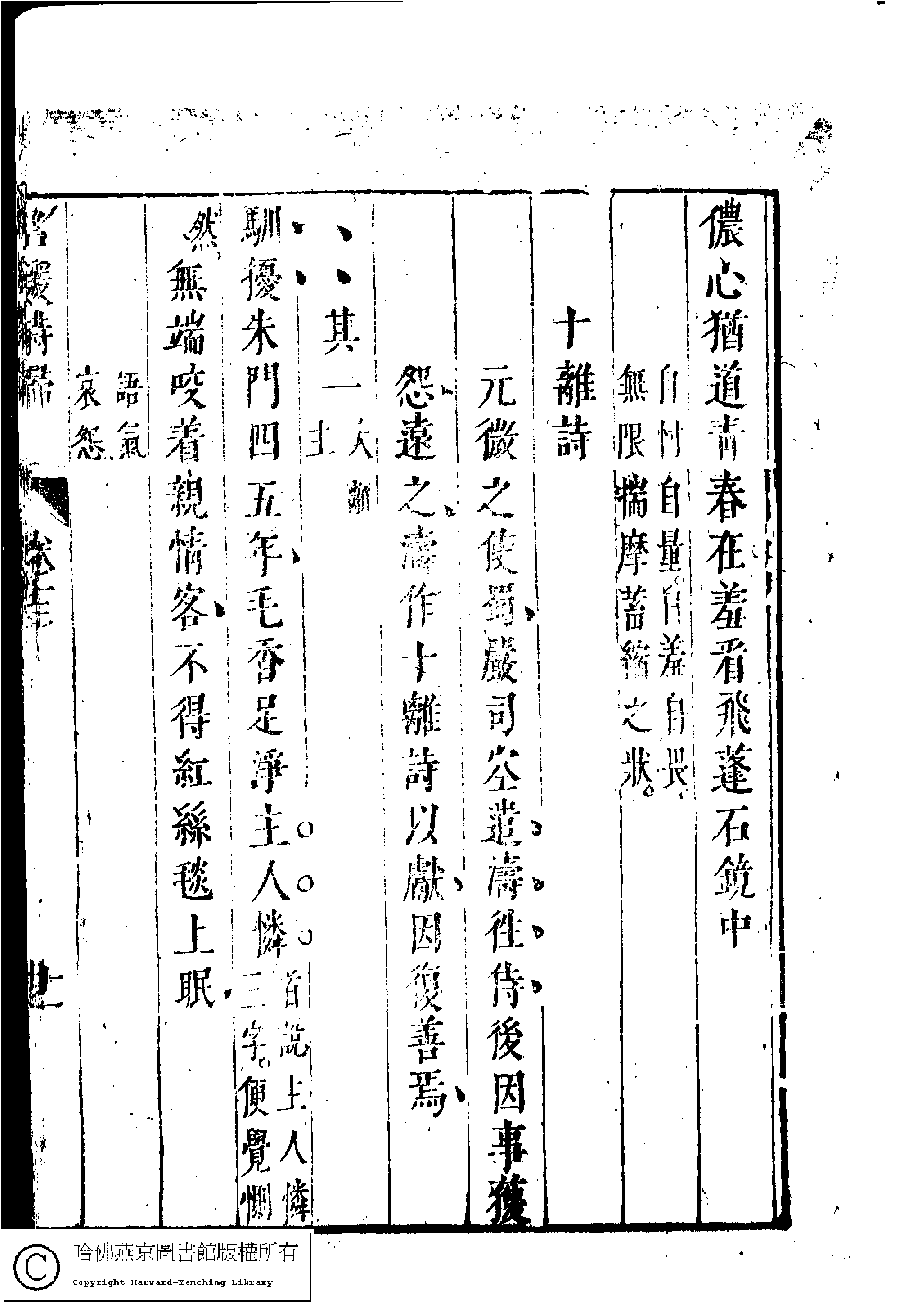 儂心猶道青春在羞看飛蓬石鏡中
自忖自量自羞自畏
無限揣摩蓄縮之狀
十離詩
元微之使蜀嚴司空遣濤往侍後因事獲
怨遠之濤作十離詩以獻因復善焉
其一
犬離
主
馴擾朱門四五年毛香足淨主人憐
首說主人憐
三字便覺惻
然
無端咬着親情客不得紅絲毯上眠
語氣
哀怨
名媛詩歸
卷十三
廿一
哈佛燕京圖書館版權所有
Copyright Harvard-Yenching Library